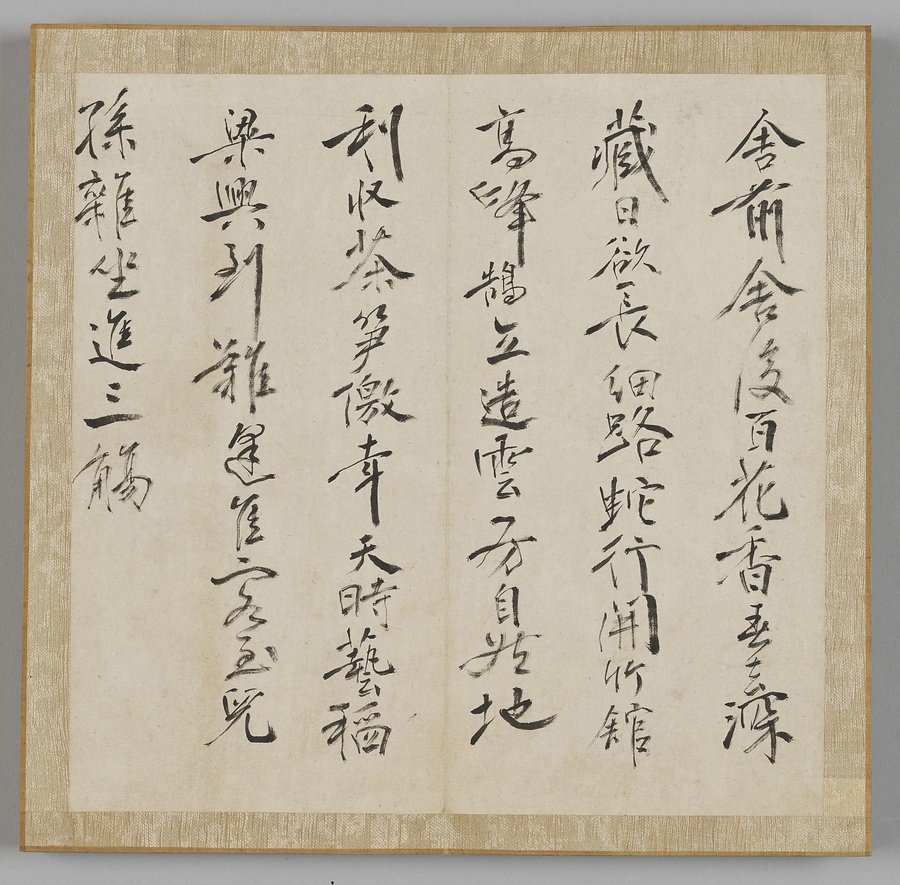 舍前舍後百花香春去深
藏日欲長細路蛇行開竹館
高峰鵠立造雲房自地
利收茶笋儌幸天時藝稻
粱興到難逢佳客至兒
孫雜坐進三觴